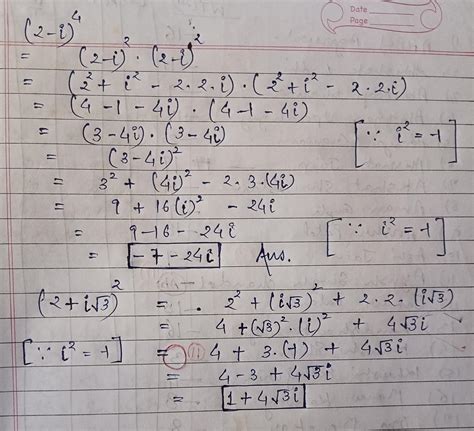 Date
Page
(2-i)⁴
= (2-i)² · (2-i)²
= (2² + i² - 2·2·i) · (2² + i² - 2·2·i)
= (4 - 1 - 4i) · (4 - 1 - 4i)
= (3 - 4i) · (3 - 4i) [∵ i² = -1]
= (3 - 4i)²
= 3² + (4i)² - 2·3·(4i)
= 9 + 16(i)² - 24i
= 9 - 16 - 24i [∵ i² = -1]
= -7 - 24i Ans.
(2 + i√3)² = 2² + (i√3)² + 2·2·(i√3)
= 4 + (√3)²·(i)² + 4√3i
[∵ i² = -1] = (11) 4 + 3·(-1) + 4√3i
= 4 - 3 + 4√3i
= 1 + 4√3i